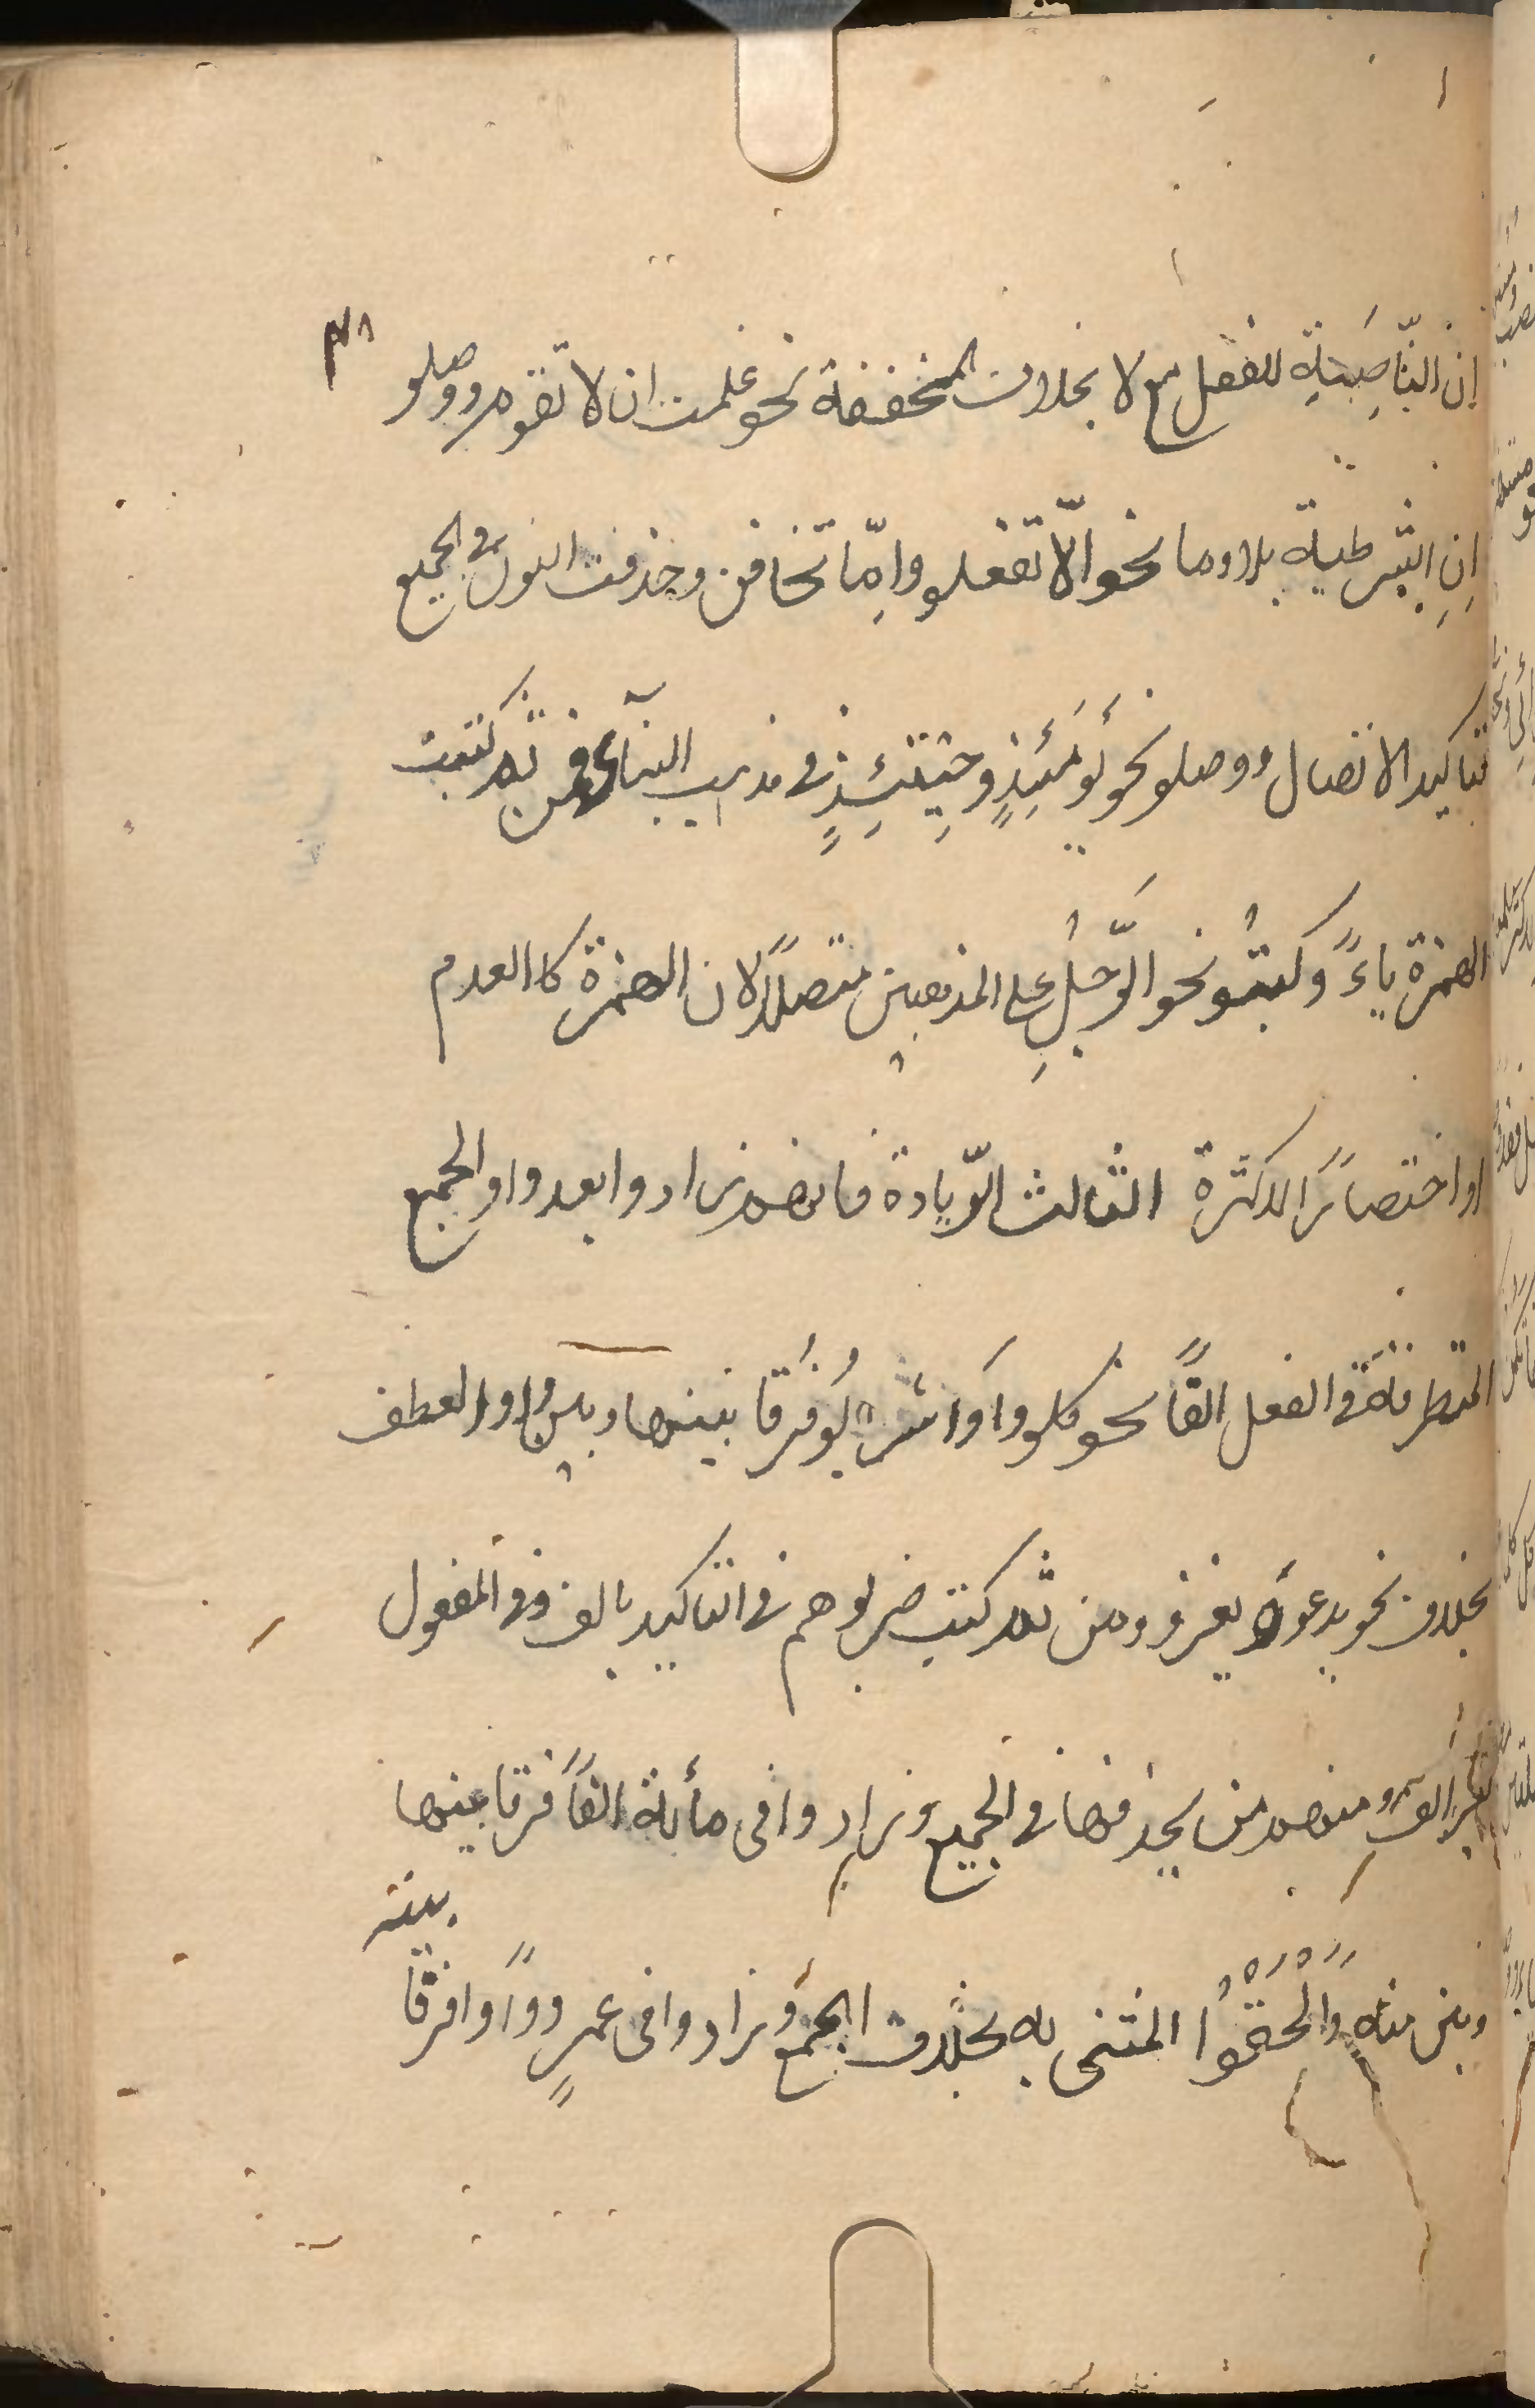 ٣٨
ان النّاصِبَةِ للفعل مع لا بخلاف المخففة نحو علمت ان لا تقوم ووصلو
اِنِ الشرطية بلا وما نحو الّا تفعلو وامّا تخافن وحذفت النون في الجميع
تأكيد الاتصال ووصلو نحو يَومَئِذٍ وحِينَئِذٍ في مذهب البنآء فمن ثم كتبت
الهمزة ياءً وكبتُو نحو الرَّجُلِ على المذهبين متصلاً لان الهمزة كالعدم
او اختصارًا للكثرة الثالث الزّيادة فانهم زادوا بعد واو الجمع
المتطرفة في الفعل الفًا نحو كلوا واشر بُو فرقا بينها وبين واو العطف
بخلاف نحو يدعو ويغزو ومن ثم كتب ضربوهم في التأكيد بالف وفي المفعول
بغير الف ومنهم من يحذفها في الجميع وزادوا في مأية الفًا فرقا بينها
وبين منه وَاَلْحَقُوا المثنى به بخلاف الجمع وزادوا في عمرٍو واوًا فرقا
بينه